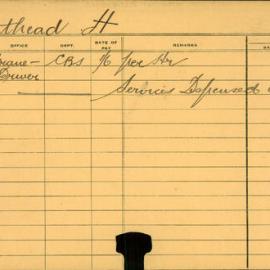 thead H
OFFICE DEPT. DATE OF PAY REMARKS
rane- CBS 1/6 per Hr
Driver Services Dispensed